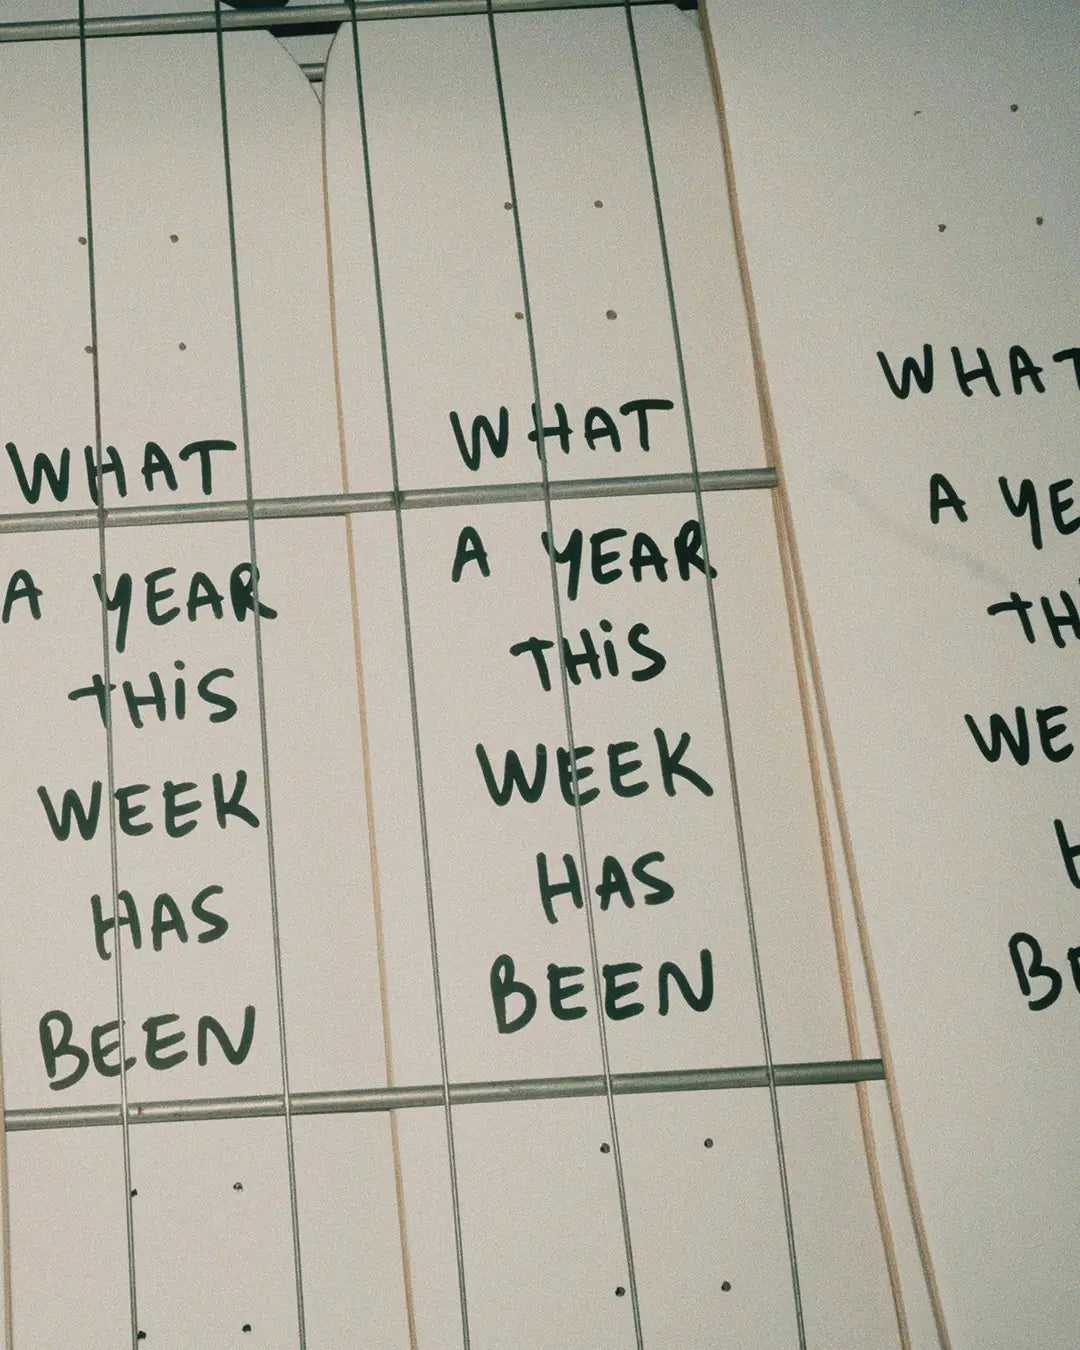 WHAT
A YEAR
THiS
WEEK
HAS
BEEN
WHAT
A YEAR
THiS
WEEK
HAS
BEEN
WHAT
A YE
TH
WE
H
BE